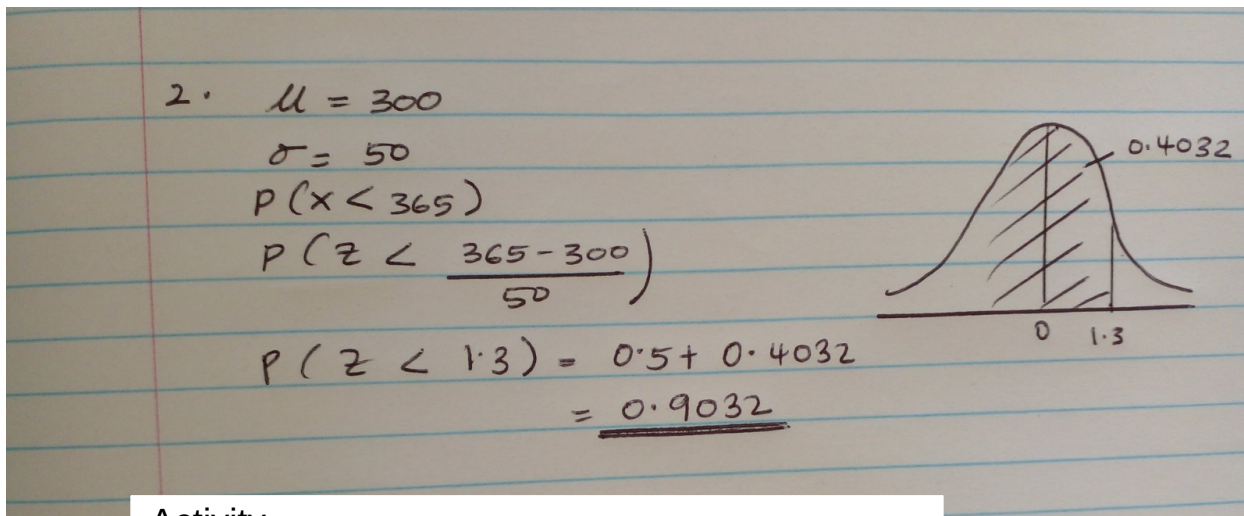 2. μ = 300
σ = 50
P(x < 365)
P(Z < 365-300
50)
P(Z < 1.3) = 0.5 + 0.4032
= 0.9032
0.4032
0 1.3